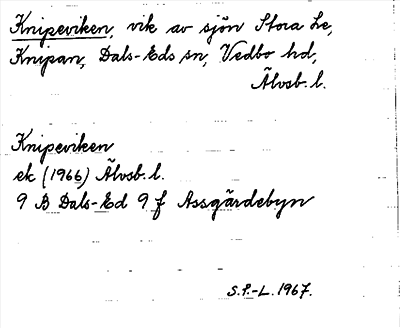 Knipeviken, vik av sjön Stora Le,
Knipan, Dals-Eds sn, Vedbo hd,
Älvsb. l.
Knipeviken
ek (1966) Älvsb. l.
9 B Dals-Ed 9 f Assgärdebyn
S.P.-L. 1967.